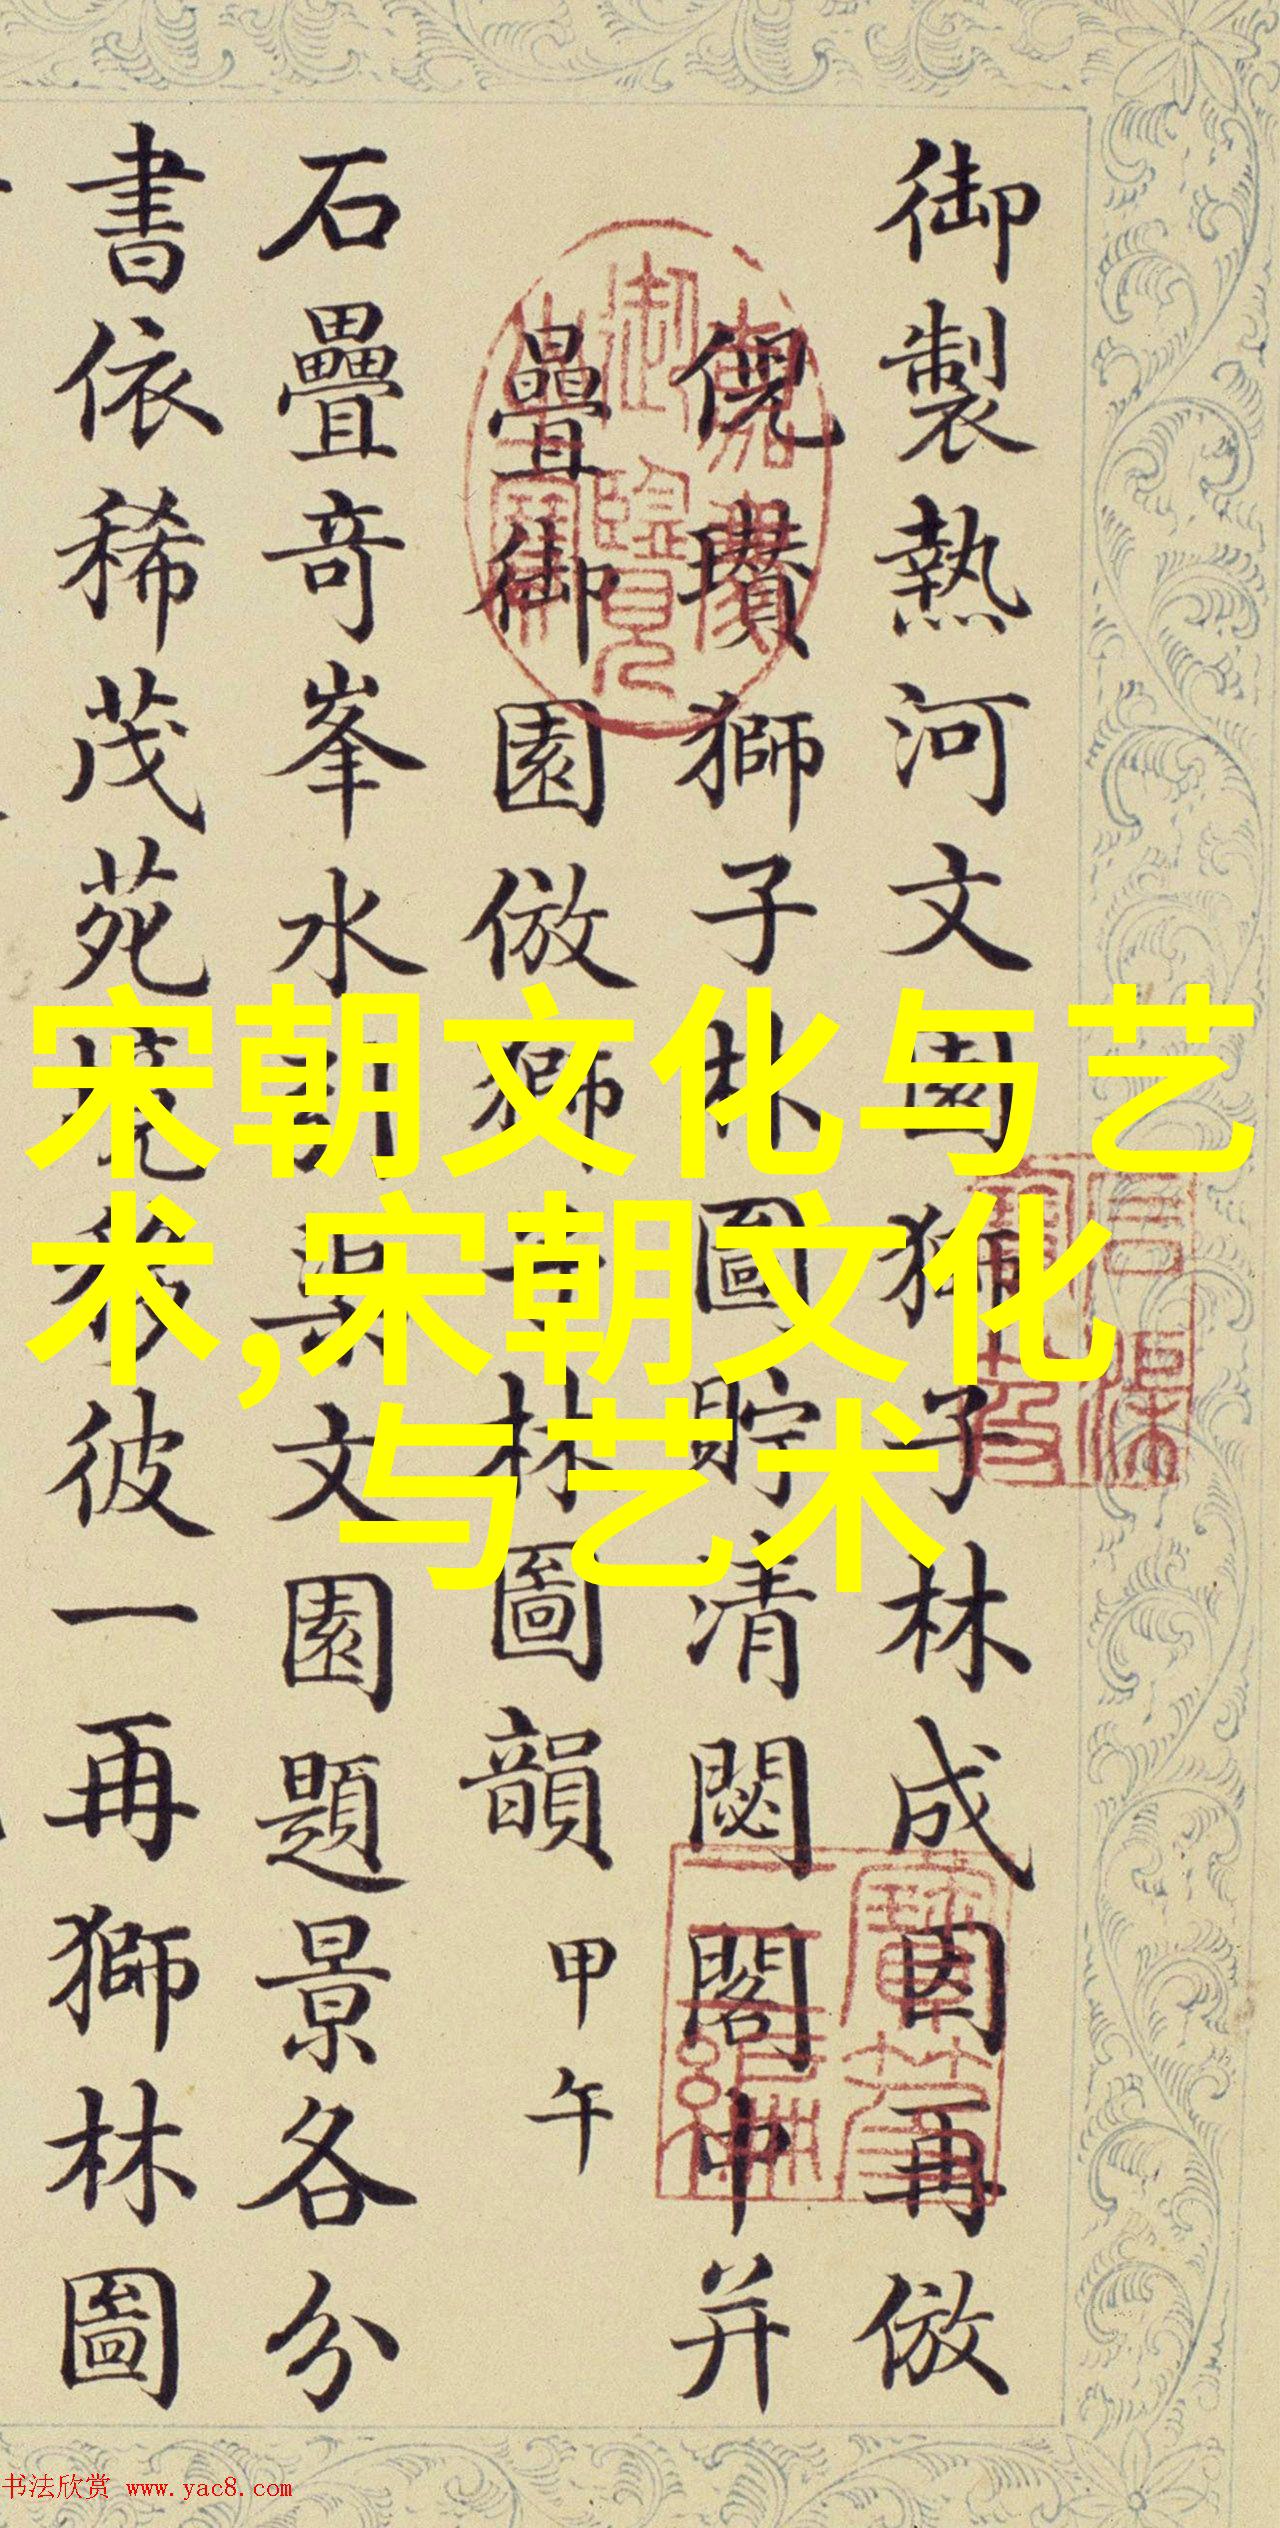 御製熱河文園獅子林成因再倣
倪瓚獅子林圖貯清閟閣中并
疊御園倣獅子林圖韻 甲午
石疊竒峯水引渠文園題景各分
書依稀茂苑境移彼一再獅林圖
宋朝文化与艺
术,宋朝文化
与艺术
书法欣赏 www.yac8.com